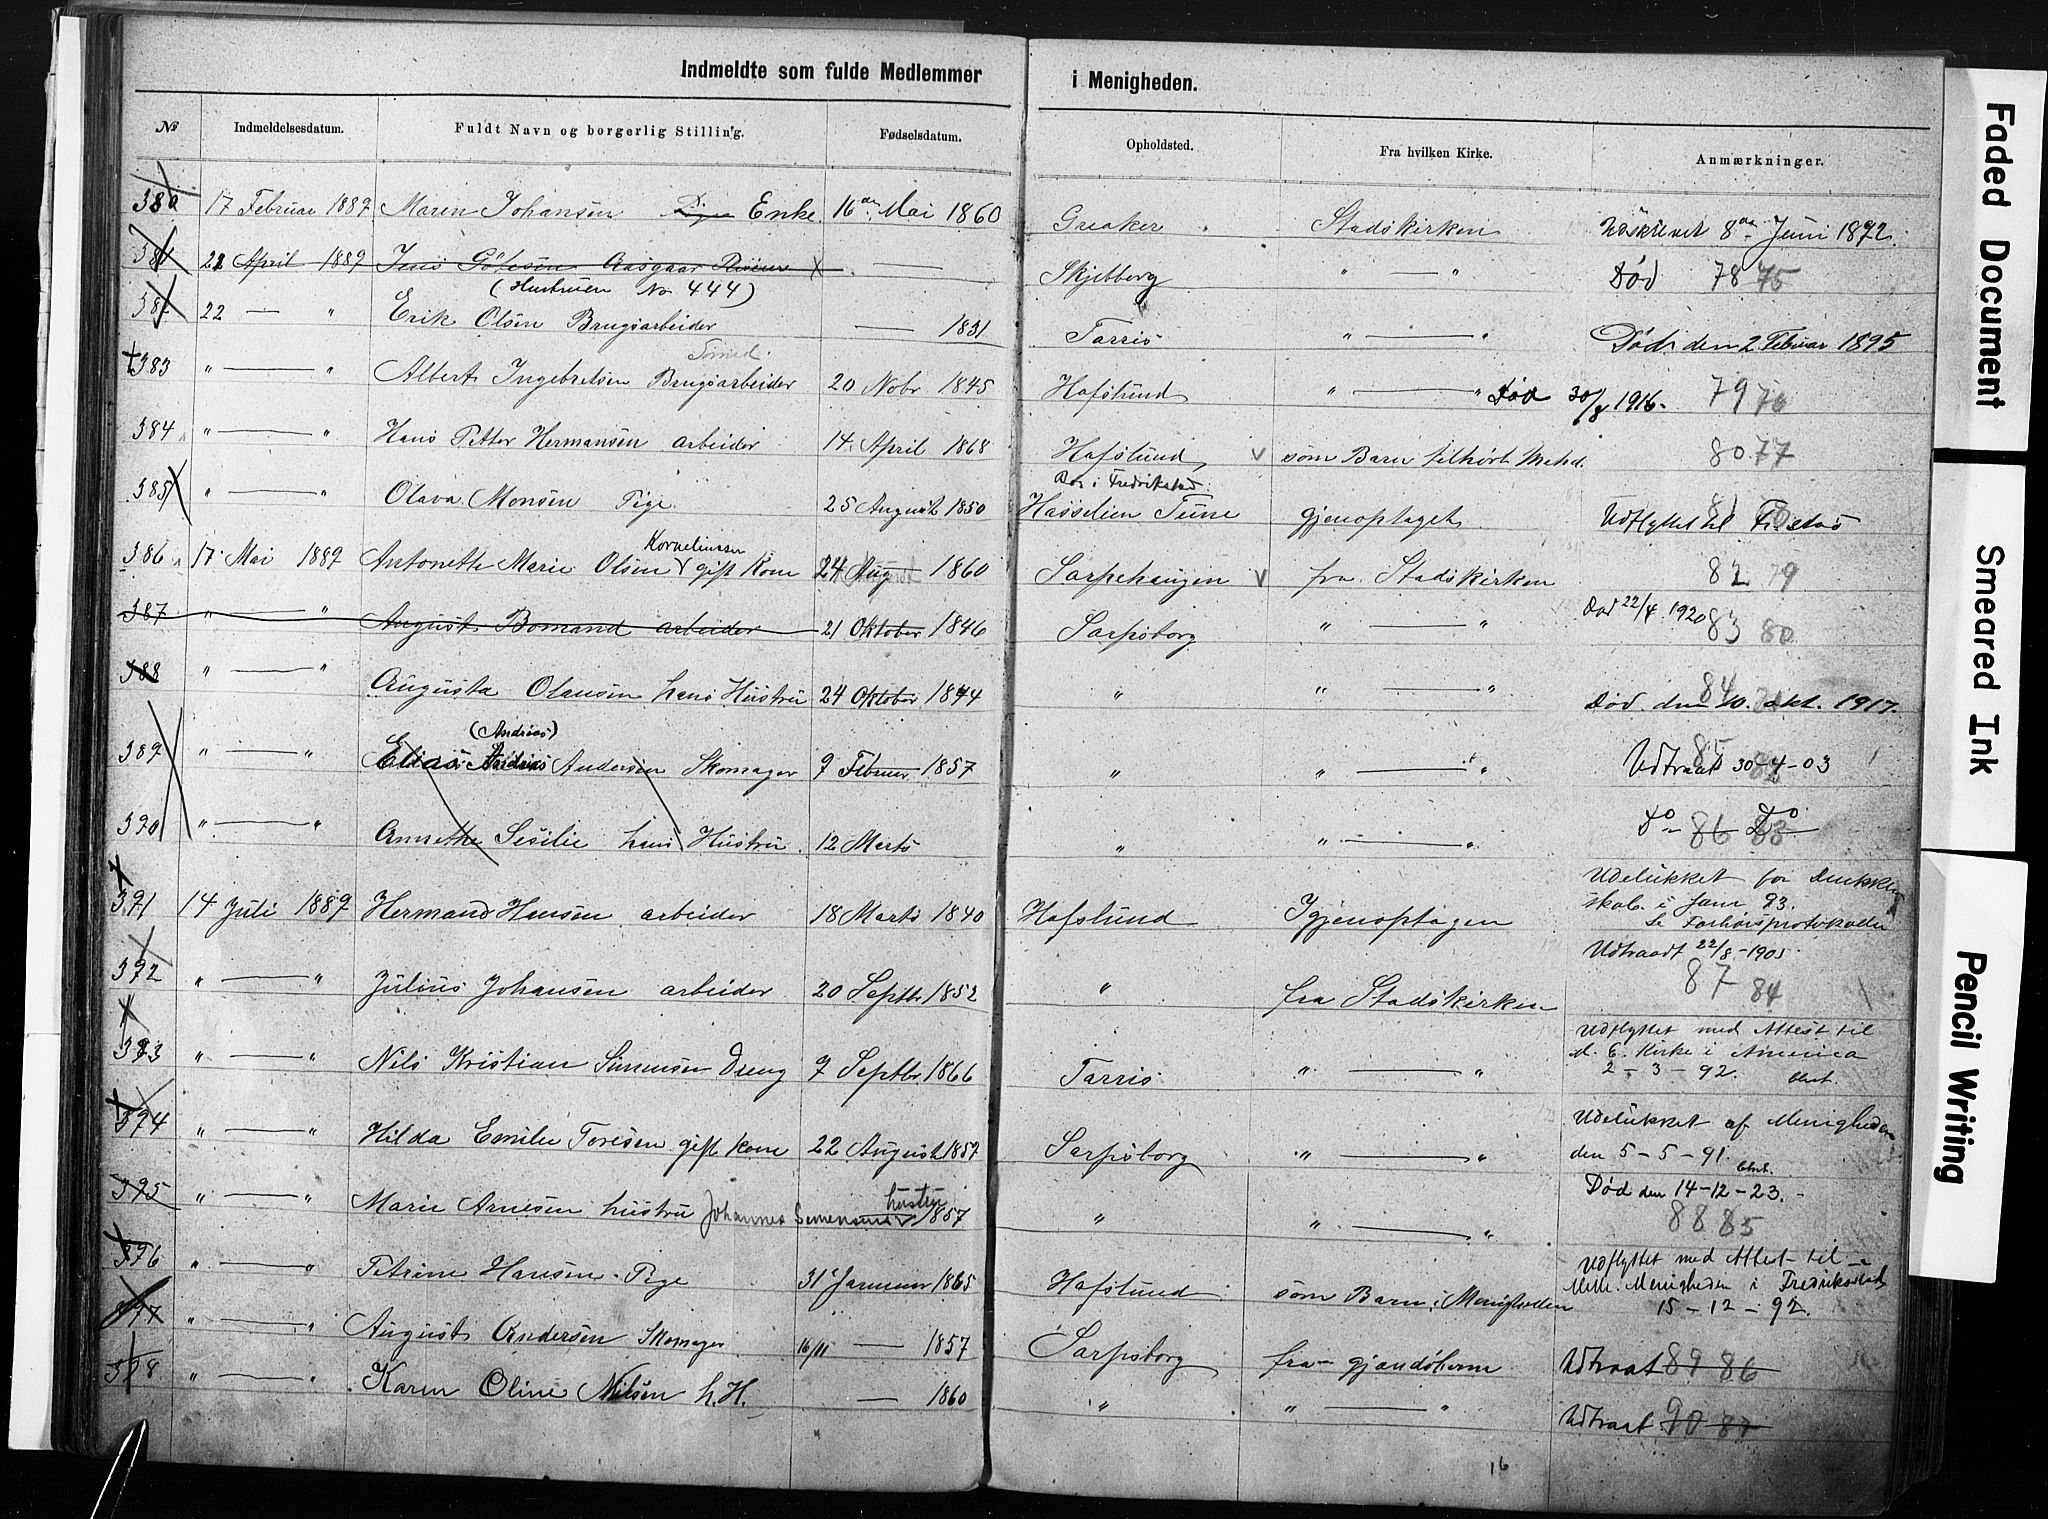 Indmeldte som fulde Medlemmer i Menigheden.
№ Indmeldelsesdatum. Fuldt Navn og borgerlig Stilling. Fødselsdatum. Opholdsted. Fra hvilken Kirke. Anmærkninger.
380 17 Februar 1889 Maren Johansen Pige Enke. 16de Mai 1860 Greaker Stadskirken Udskrevet 8de Juni 1892.
381 22 April 1889 Jens Aasgaar — Skjebberg " — " Død 78 75
(Hustruen No 444)
382 22 — " Erik Olsen Brugsarbeider — 1831 Tarris " — " Død den 2 Februar 1895
383 " — " Albert Ingebretsen Brugsarbeider 20 Nobr 1845 Hafslund " — " Død 30/8 1916. 79 76
384 " — " Hans Petter Hermansen arbeider 14 April 1868 Hafslund, V som Barn tilhørt Methd. 80 77
Bor i Fredrikstad
385 " — " Olava Monsen Pige 25 August 1850 Hasselien Tune gjenoptaget Udflyttet til Fr.stad
Korneliussen
386 17 Mai 1889 Antonette Marie Olsen gift Kone 24 Aug 1860 Sarpehaugen V fra Stadskirken 82 79
387 " — " August Bomand arbeider 21 Oktober 1846 Sarpsborg " — " Død 22/4 1920 83 80
388 " — " Augusta Olausen hans Hustru 24 Oktober 1844 " " — " 84 Død den 10. okt. 1917.
(Andreas)
389 " — " Elias Andreas Andersen Skomager 9 Februar 1857 " " — " 85 Udtraat 30-4-03
390 " — " Annethe Sesilie hans Hustru. 12 Marts " " — " Do 86 Do 83
391 14 Juli 1889 Hermand Hansen arbeider 18 Marts 1840 Hafslund Igjenoptagen Udelukket for Drukken
skab. i Janr 93.
Se Forhørsprotokollen
392 " — " Julius Johansen arbeider 20 Septbr 1852 " fra Stadskirken Udtraadt 22/8-1905
87 84
393 " — " Nils Kristian Simensen Dreng 9 Septbr 1866 Tarris " — " Udflyttet med Attest til
d. E. Kirke i America
2-3-92.
394 " — " Hilda Emilie Toresen gift kone 22 August 1857 Sarpsborg " — " Udelukket af Menigheden
den 5-5-91.
395 " — " Marie Arnesen hustru Johannes Simensens hustru 1857 " " — " Død den 14-12-23.
88 85
396 " — " Petrine Hansen Pige 31 Januar 1865 Hafslund som Barn i Menigheden Udflyttet med Attest til
Meth. Menigheden i Fredrikstad
15-12-92.
397 " — " August Andersen Skomager 16/11 — 1857 Sarpsborg fra gjendøberne Udtraat 89 86
398 " — " Karen Oline Nilsen h. H. — 1860 " " — " Udtraat 90 87
16
Faded Document
Smeared Ink
Pencil Writing